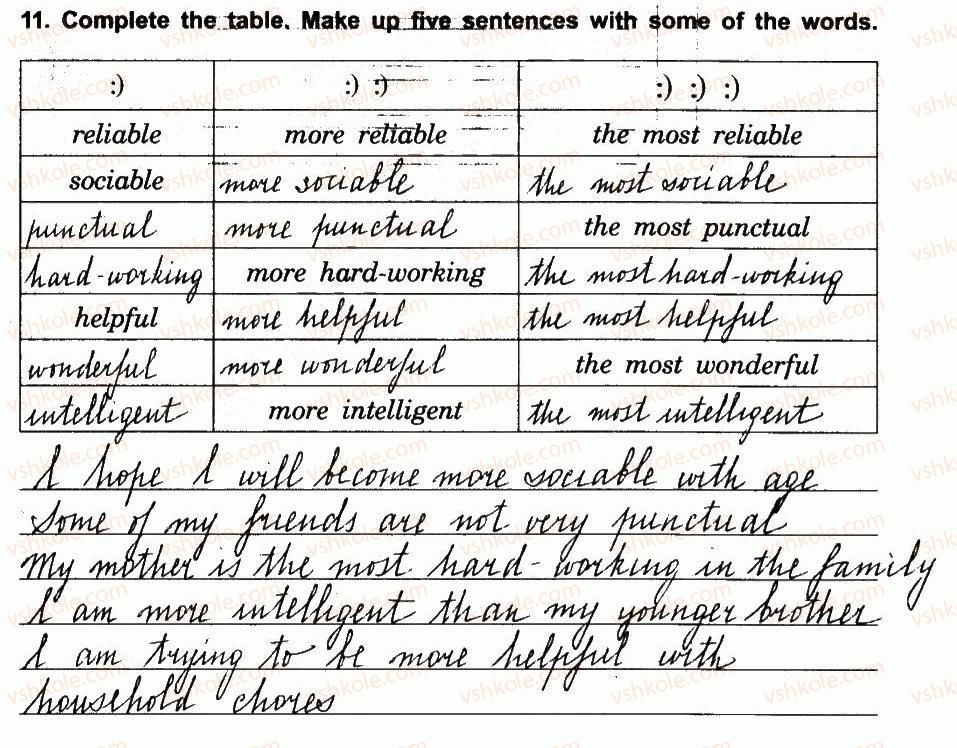 11. Complete the table. Make up five sentences with some of the words.
:) :) :) :) :) :)
reliable more reliable the most reliable
sociable more sociable the most sociable
punctual more punctual the most punctual
hard-working more hard-working the most hard-working
helpful more helpful the most helpful
wonderful more wonderful the most wonderful
intelligent more intelligent the most intelligent
I hope I will become more sociable with age
Some of my friends are not very punctual
My mother is the most hard-working in the family
I am more intelligent than my younger brother
I am trying to be more helpful with
household chores
vshkole.com